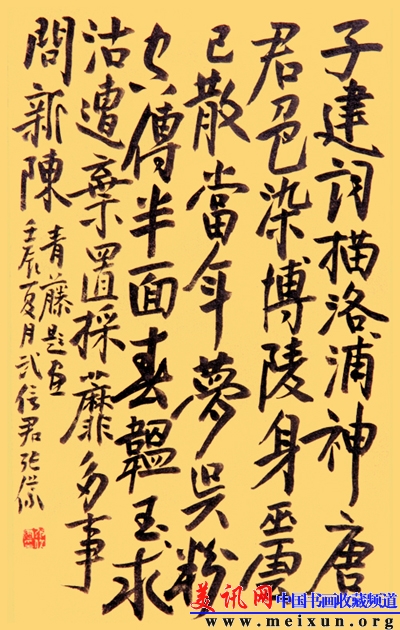 子建詞描洛浦神唐
君色染博陵身巫雲
已散當年夢吳粉
空傳半面春韞玉求
沽遭棄置採蘼多事
問新陳
青藤題畫
壬辰夏月武信君張
美讯网
中国书画收藏频道
www.meixun.org